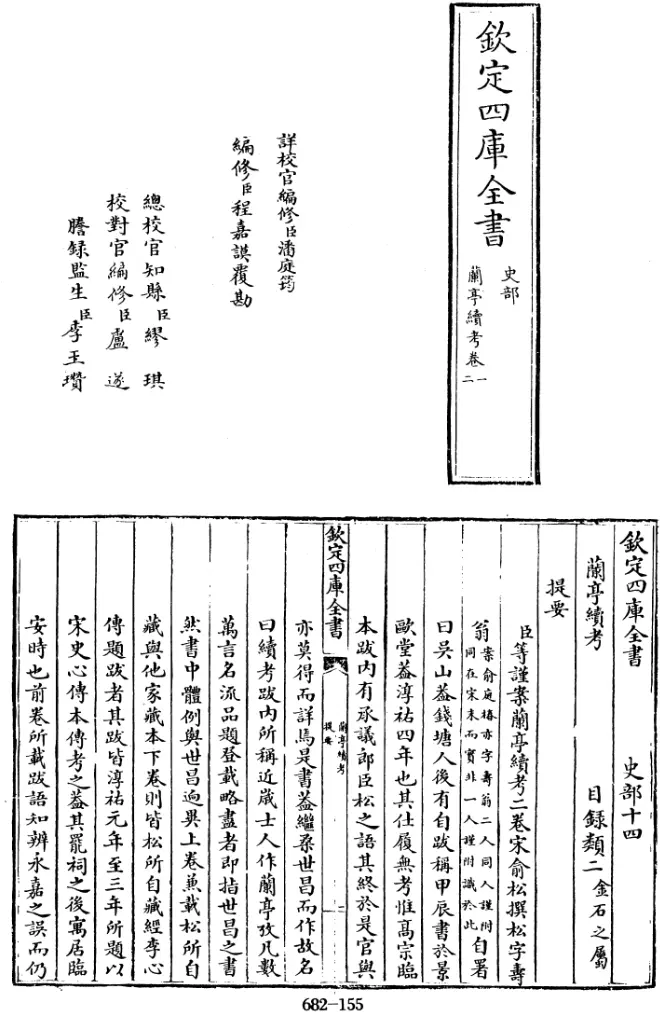 欽定四庫全書
史部
蘭亭續考卷一
二
詳校官編修臣潘庭筠
編修臣程嘉謨覆勘
總校官知縣臣繆琪
校對官編修臣盧遂
謄録監生臣李玉瓚
欽定四庫全書 史部十四
蘭亭續考 目録類二金石之屬
提要
臣等謹案蘭亭續考二卷宋俞松撰松字壽
翁案俞庭椿亦字壽翁二人同
同在宋末而實非一人謹附識於此自署
曰吳山葢錢塘人後有自跋稱甲辰書於景
歐堂葢淳祐四年也其仕履無考惟髙宗臨
本跋内有承議郎臣松之語其終於是官與
欽定四庫全書
蘭亭續考
提要
一
亦莫得而詳焉是書葢繼桑世昌而作故名
曰續考跋内所稱近嵗士人作蘭亭攷凡數
萬言名流品題登載略盡者即指世昌之書
然書中體例與世昌逈異上卷兼載松所自
藏與他家藏本下卷則皆松所自藏經李心
傳題跋者其跋皆淳祐元年至三年所題以
宋史心傳本傳考之葢其罷祠之後寓居臨
安時也前卷所載跋語知辨永嘉之誤而仍
682-155